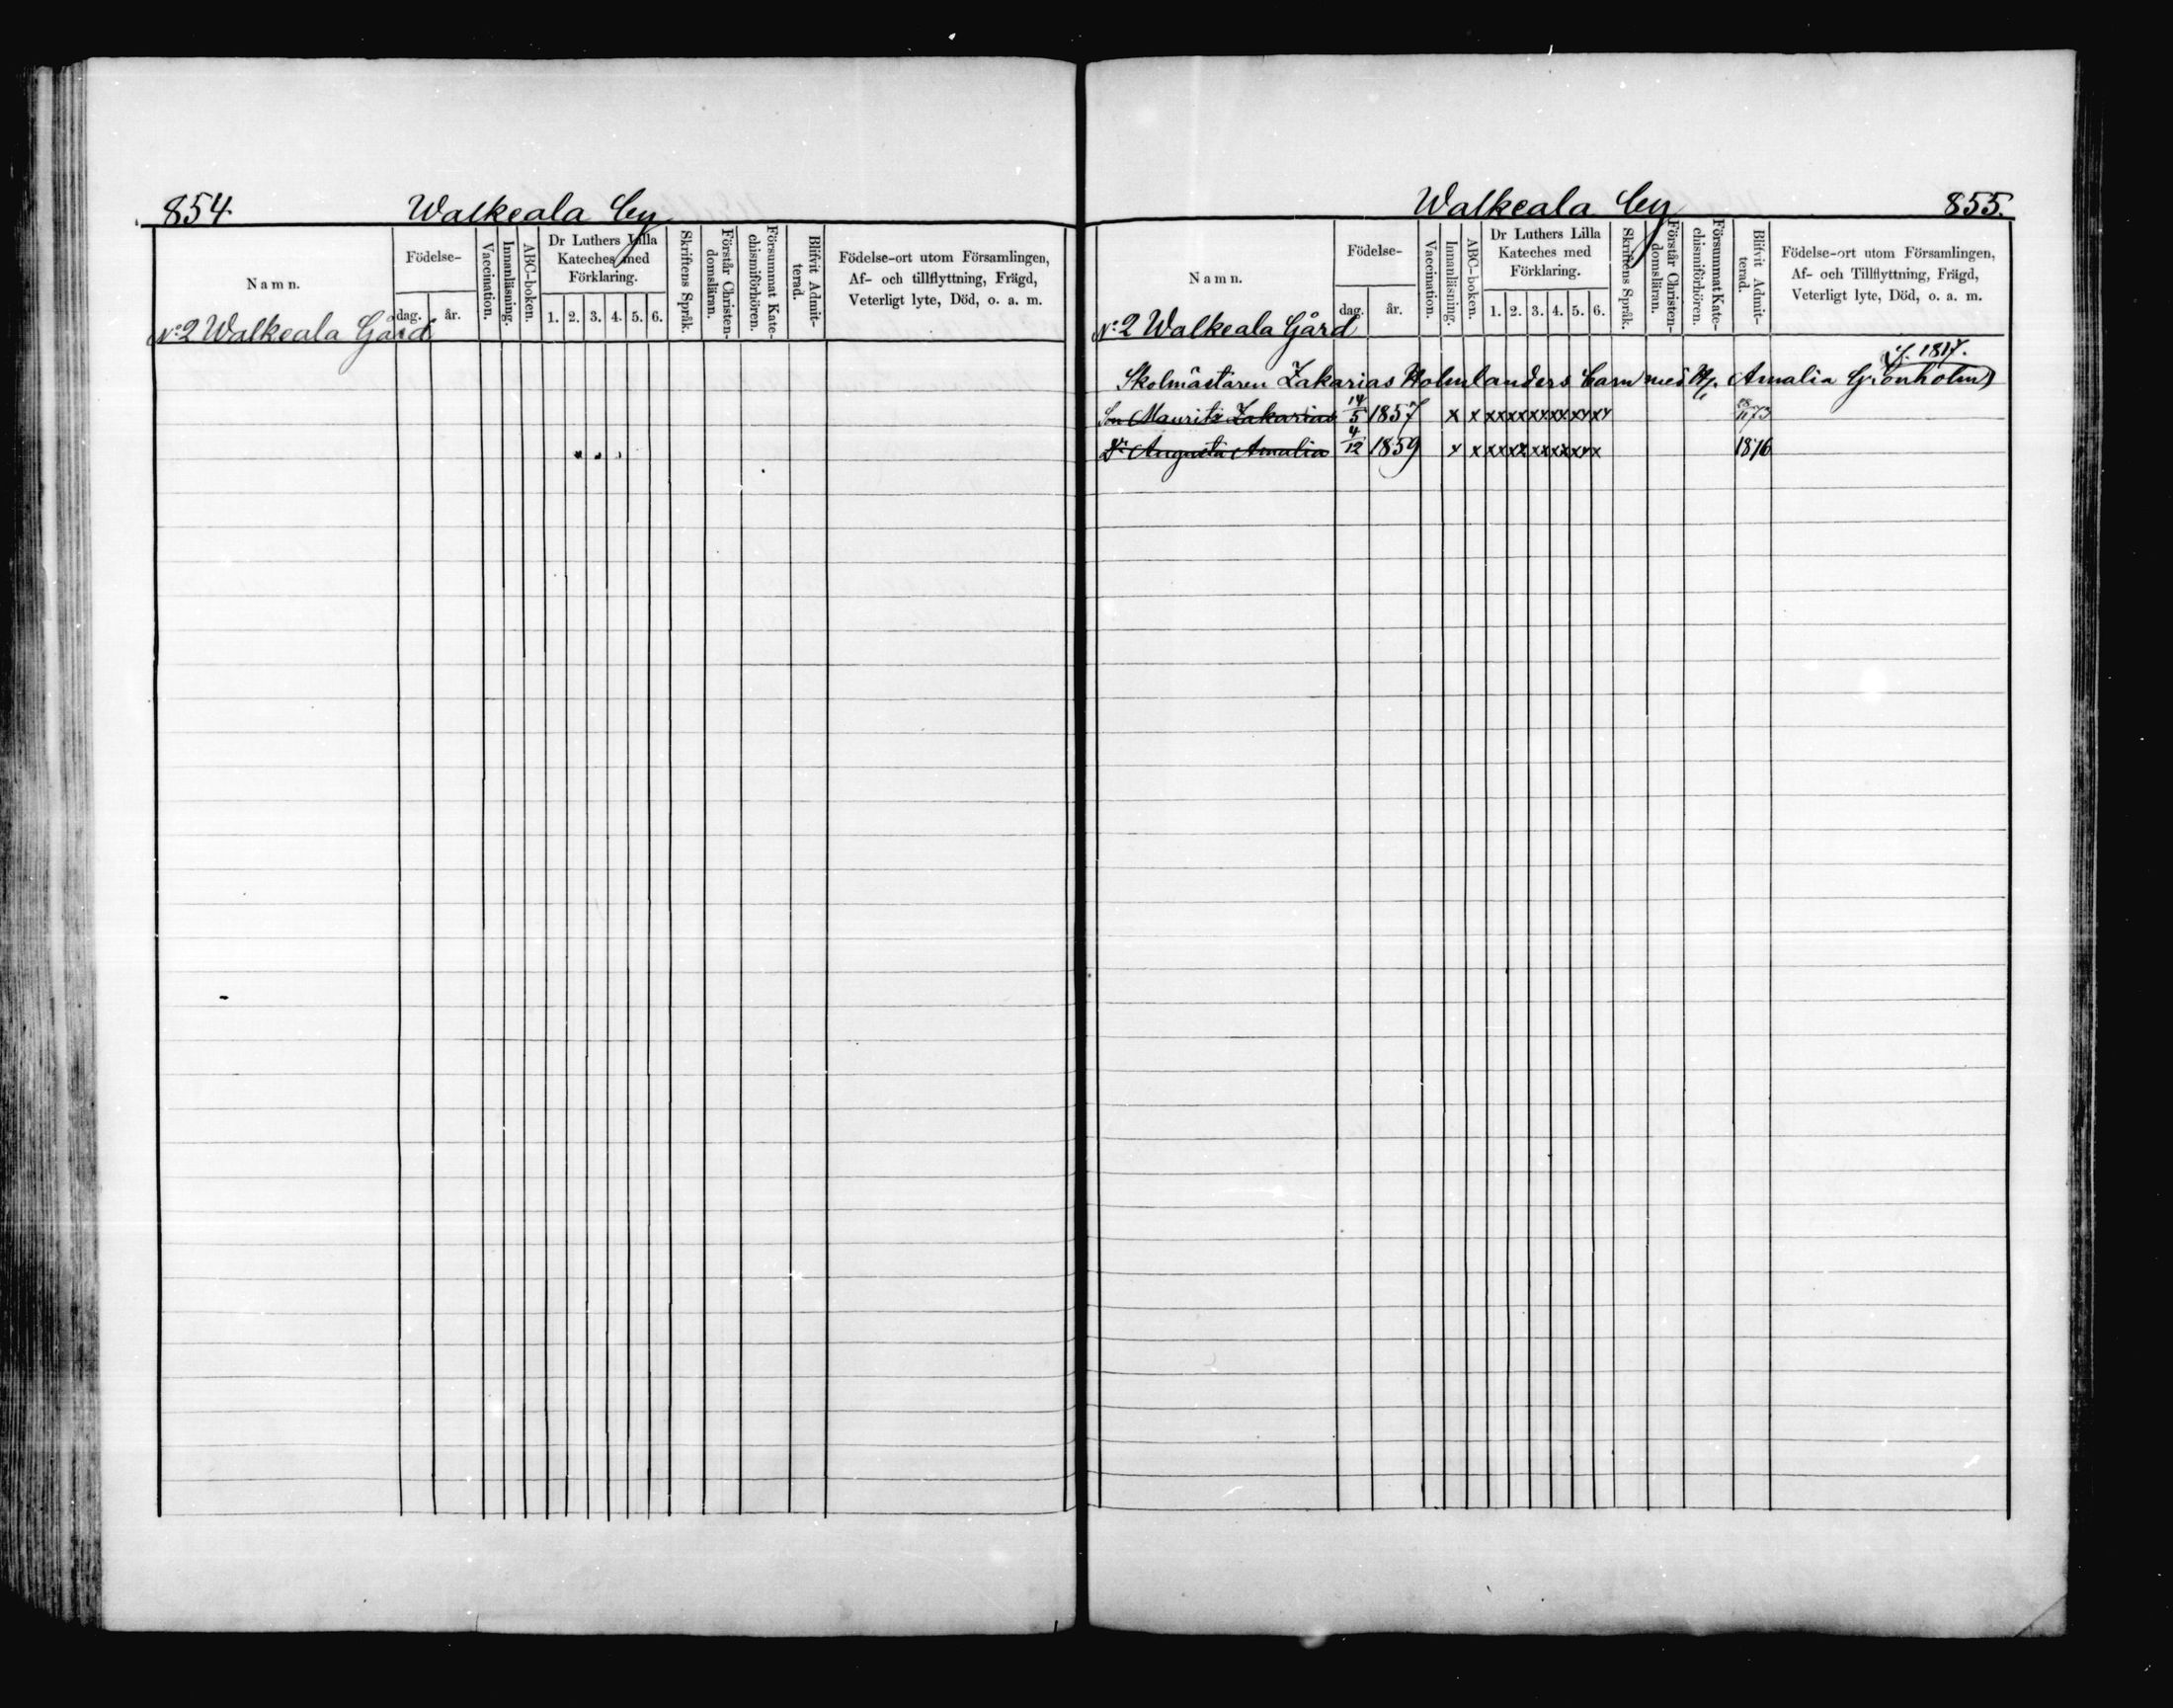 854.
Walkeala by
Namn.
Födelse-
dag.
år.
Vaccination.
Innanläsning.
ABC-boken.
Dr Luthers Lilla
Kateches med
Förklaring.
1. 2. 3. 4. 5. 6.
Skriftens Språk.
Förstår Christen-
domsläran.
Försummat Kate-
chismiförhören.
Blifvit Admit-
terad.
Födelse-ort utom Församlingen,
Af- och tillflyttning, Frägd,
Veterligt lyte, Död, o. a. m.
No 2 Walkeala Gård
Walkeala by
855.
Namn.
Födelse-
dag.
år.
Vaccination.
Innanläsning.
ABC-boken.
Dr Luthers Lilla
Kateches med
Förklaring.
1. 2. 3. 4. 5. 6.
Skriftens Språk.
Förstår Christen-
domsläran.
Försummat Kate-
chismiförhören.
Blifvit Admit-
terad.
Födelse-ort utom Församlingen,
Af- och Tillflyttning, Frägd,
Veterligt lyte, Död, o. a. m.
No 2 Walkeala Gård
f. 1817.
Skolmästaren Zakarias Holmlanders barn med H. Amalia Grönholm)
Son Maurits Zakarias 14/5 1857 x x xxxxxxxxxxxx 73
Dr Augusta Amalia 4/12 1859 x x xxxxxxxxxxx 1876